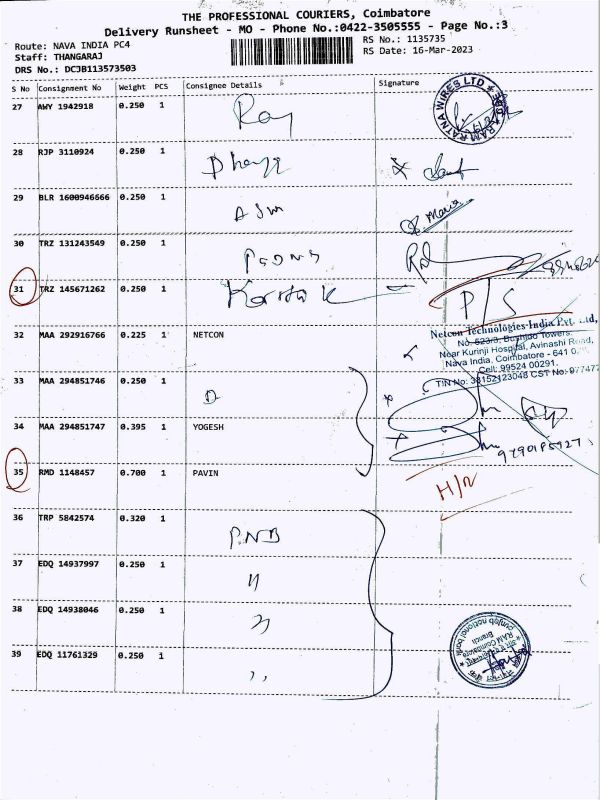 THE PROFESSIONAL COURIERS, Coimbatore
Delivery Runsheet - MO - Phone No.:0422-3505555 - Page No.:3
Route: NAVA INDIA PC4
RS No.: 1135735
Staff: THANGARAJ
RS Date: 16-Mar-2023
DRS No.: DCJB113573503
S No Consignment No Weight PCS Consignee Details Signature
27 AWY 1942918 0.250 1
RAM RATNA WIRES LTD
28 RJP 3110924 0.250 1
29 BLR 1600946666 0.250 1 ASW
30 TRZ 131243549 0.250 1
31 TRZ 145671262 0.250 1 P/S
32 MAA 292916766 0.225 1 NETCON
Netcon Technologies India Pvt. Ltd,
No. 523/3, Bushido Towers,
Near Kurinji Hospital, Avinashi Road,
Nava India, Coimbatore - 641
Cell: 99524 00291.
TIN No: 33152123048 CST No: 977477
33 MAA 294851746 0.250 1 D
34 MAA 294851747 0.395 1 YOGESH
35 RMD 1148457 0.700 1 PAVIN
36 TRP 5842574 0.320 1 P.N.B
37 EDQ 14937997 0.250 1 "
38 EDQ 14938046 0.250 1
39 EDQ 11761329 0.250 1 ,,
punjab national bank
RAM Coimbatore
Branch